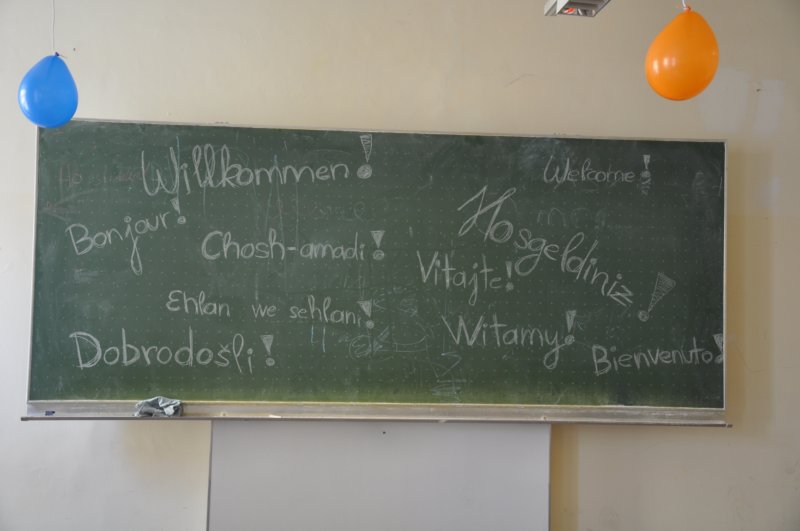 Willkommen!
Welcome!
Bonjour!
Chosh-amadi!
Hosgeldiniz!
Vitajte!
Ehlan we sehlan!
Witamy!
Dobrodošli!
Bienvenuto!